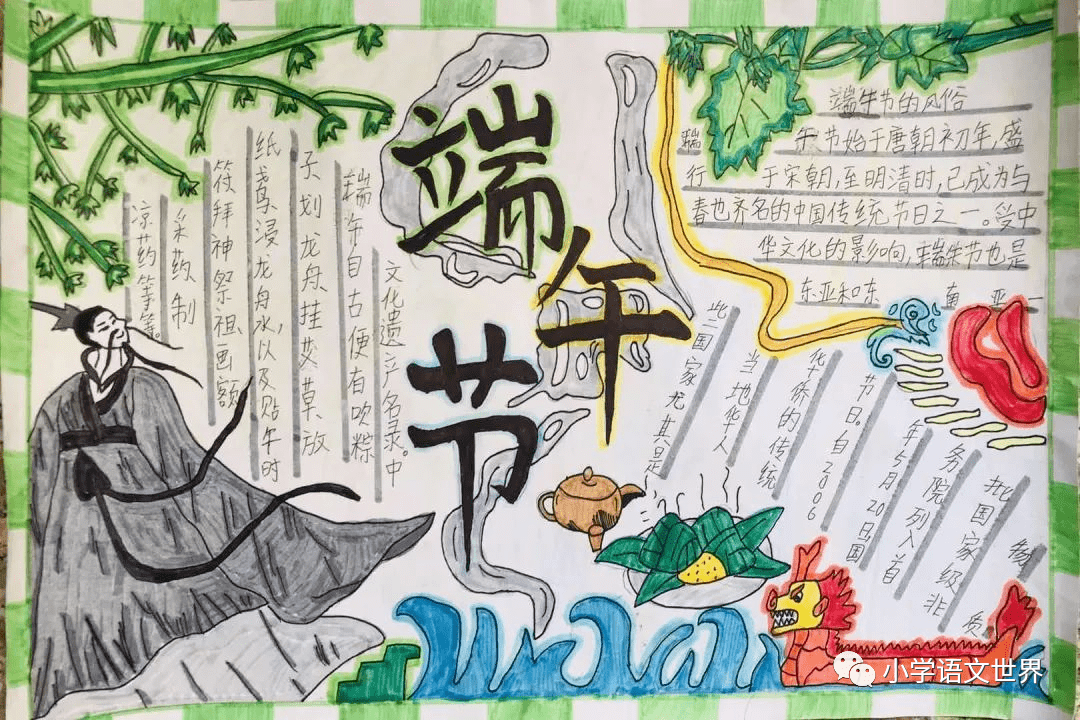 端午节
端午节的风俗
端 午节始于唐朝初年,盛
行 于宋朝,至明清时,已成为与
春也齐名的中国传统节日之一。受中
华文化的影响,端午节也是
东亚和东 南 亚一
些国家尤其是
当地华人
华侨的传统
节日。自2006
年5月20日国
务院列入首
批国家级非
质
文化遗产名录。中
端午自古便有吹粽
子划龙舟挂艾草放
纸鸢浸龙舟水,以及贴午时
符拜神祭祖画额
采药制
凉药等等。
小学语文世界